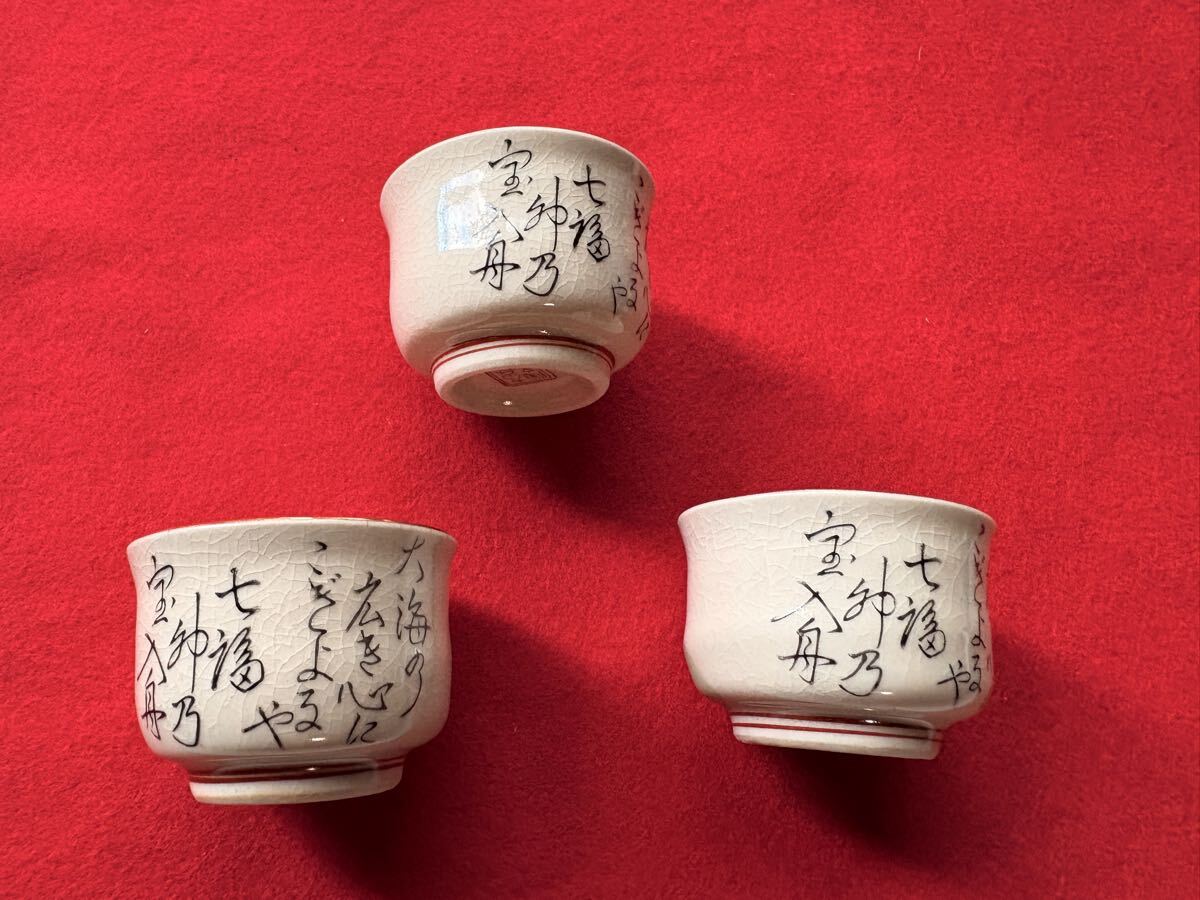 こぎよる
や
七福
神乃
宝入舟
大海の
広き心に
こぎよる
や
七福
神乃
宝入舟
こぎよる
や
七福
神乃
宝入舟